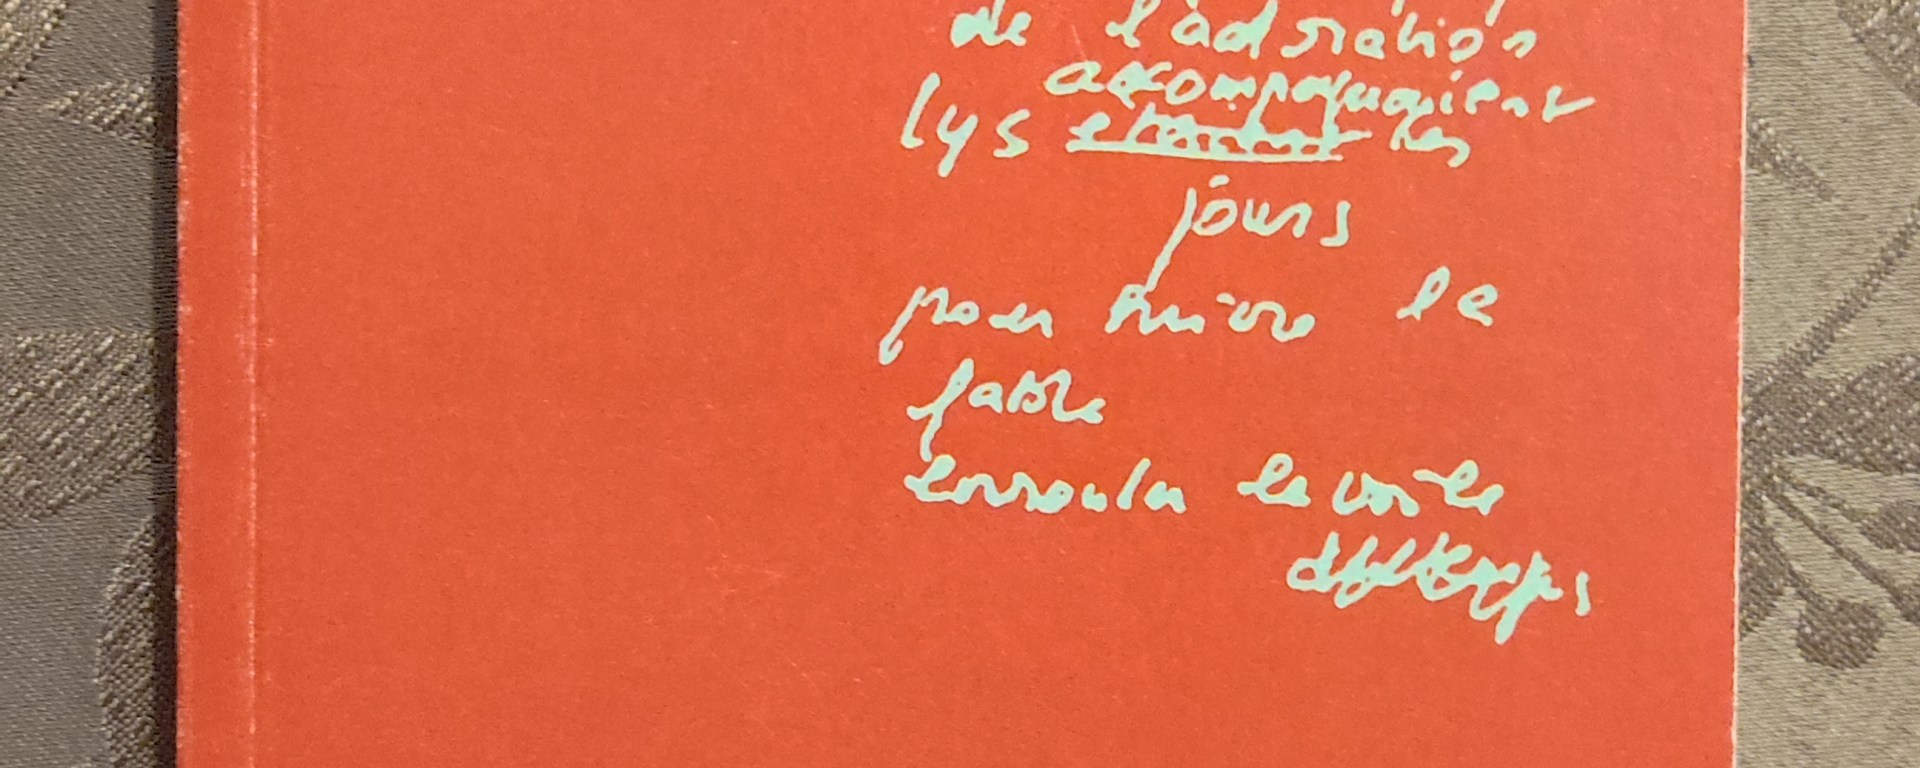 de l'adoration
accompagnaient
lys les
jours
pour suivre la
fable
enrouler le voile